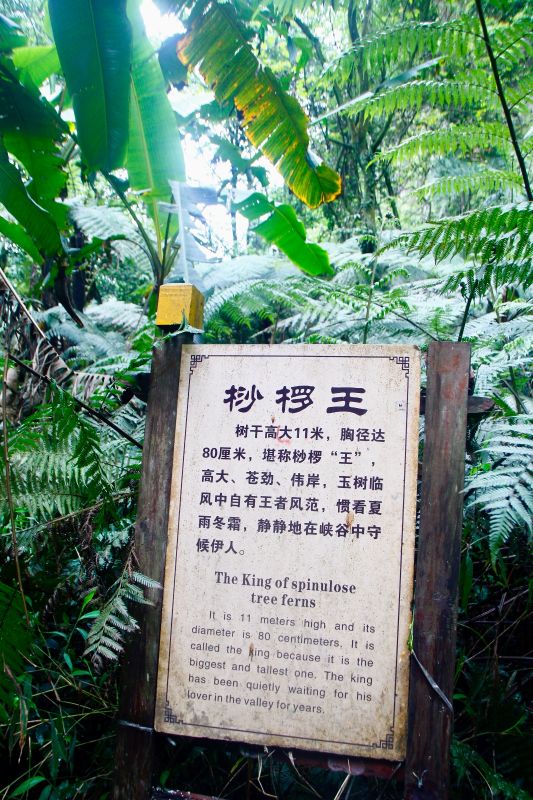 桫椤王
树干高大11米，胸径达
80厘米，堪称桫椤“王”，
高大、苍劲、伟岸，玉树临
风中自有王者风范，惯看夏
雨冬霜，静静地在峡谷中守
候伊人。
The King of spinulose
tree ferns
It is 11 meters high and its
diameter is 80 centimeters. It is
called the king because it is the
biggest and tallest one. The king
has been quietly waiting for his
lover in the valley for years.